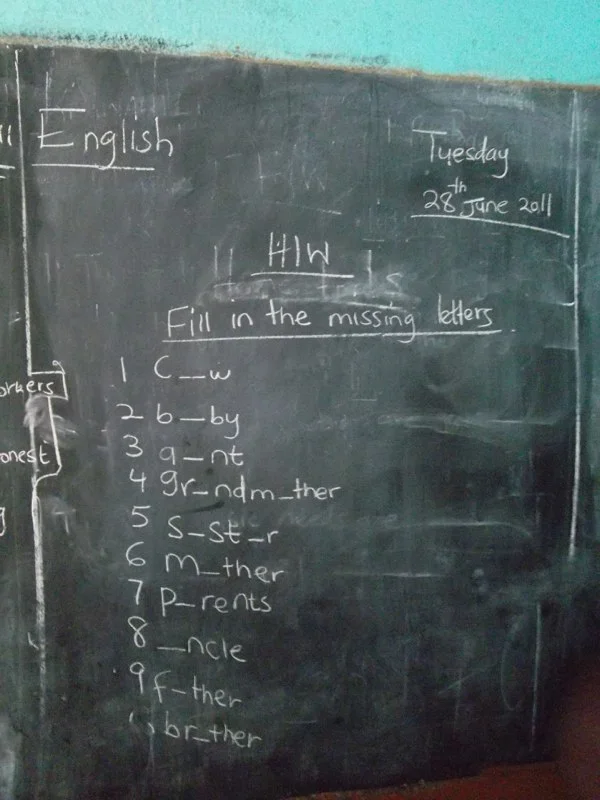 English
Tuesday
28th June 2011
H/W
Fill in the missing letters
1 C_w
2 b_by
3 a_nt
4 gr_ndm_ther
5 s_st_r
6 m_ther
7 p_rents
8 _ncle
9 f_ther
br_ther
orkers
onest